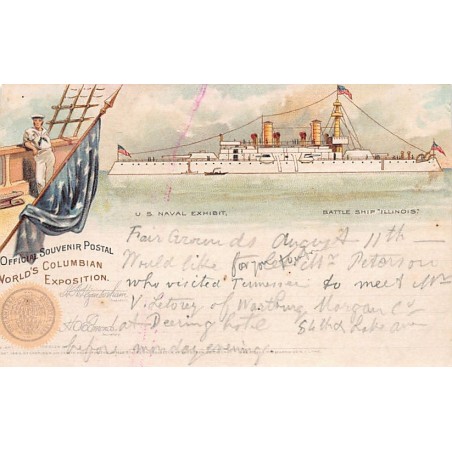 U.S. NAVAL EXHIBIT,
BATTLE SHIP "ILLINOIS."
OFFICIAL SOUVENIR POSTAL
WORLD'S COLUMBIAN
EXPOSITION.
Fair Grounds August 11th —
Would like for Mr Peterson
who visited Tennessee to meet Mr
V. of Wartburg Morgan Co
at Deering hotel 56th & Lake ave
before monday evening